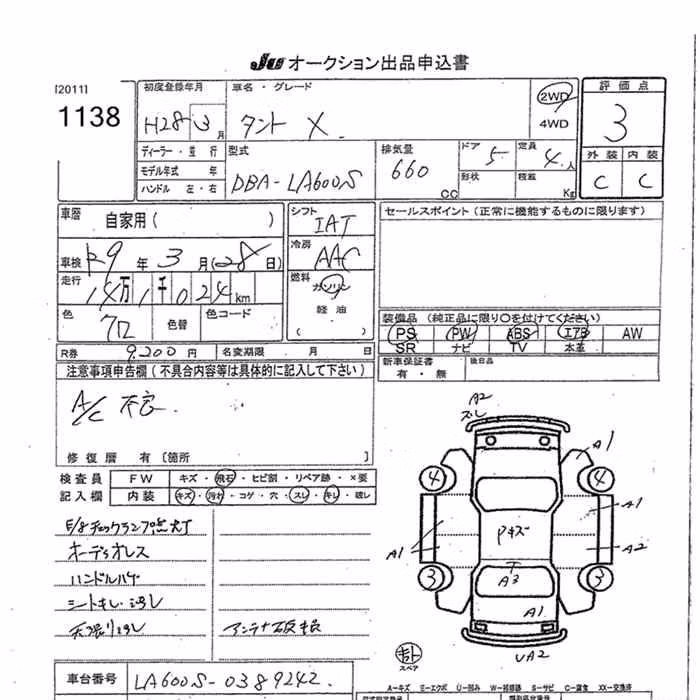 JU オークション出品申込書
[2011]
1138
初度登録年月
H28 3月
車名・グレード
タント X
2WD
4WD
評価点
3
外装 内装
C C
ディーラー・並行
モデル年式 年
ハンドル 左・右
型式
DBA-LA600S
排気量
660 CC
ドア 5
形状
定員 4人
積載 Kg
車歴 自家用( )
車検 R9年3月(28日)
走行 14万1千024km
色 クロ
色替
色コード
シフト
IAT
冷房
AAC
燃料
ガソリン
軽油
( )
セールスポイント(正常に機能するものに限ります)
装備品(純正品に限り○を付けてください)
PS PW ABS エアB AW
SR ナビ TV 本革
新車保証書
有・無
後日品
R券 9,200円 名変期限 月 日
注意事項申告欄(不具合内容等は具体的に記入して下さい)
A/C 不良
修復歴 有[箇所 ]
検査員
記入欄
FW キズ・飛石・ヒビ割・リペア跡・×要
内装 キズ・汚れ・コゲ・穴・スレ・キレ・破レ
E/gチェックランプ点灯
オーディオレス
ハンドルハゲ
シートキレ・汚レ
天張り汚レ
アンテナ破損
A2
ズレ
A1
4 4
A1
Pキズ
A1 A2
3 3
A3
A1
スペア
UA2
車台番号 LA600S-0389242
A−キズ E−エクボ U−凹み W−補修跡 S−サビ C−腐食 XX−交換済